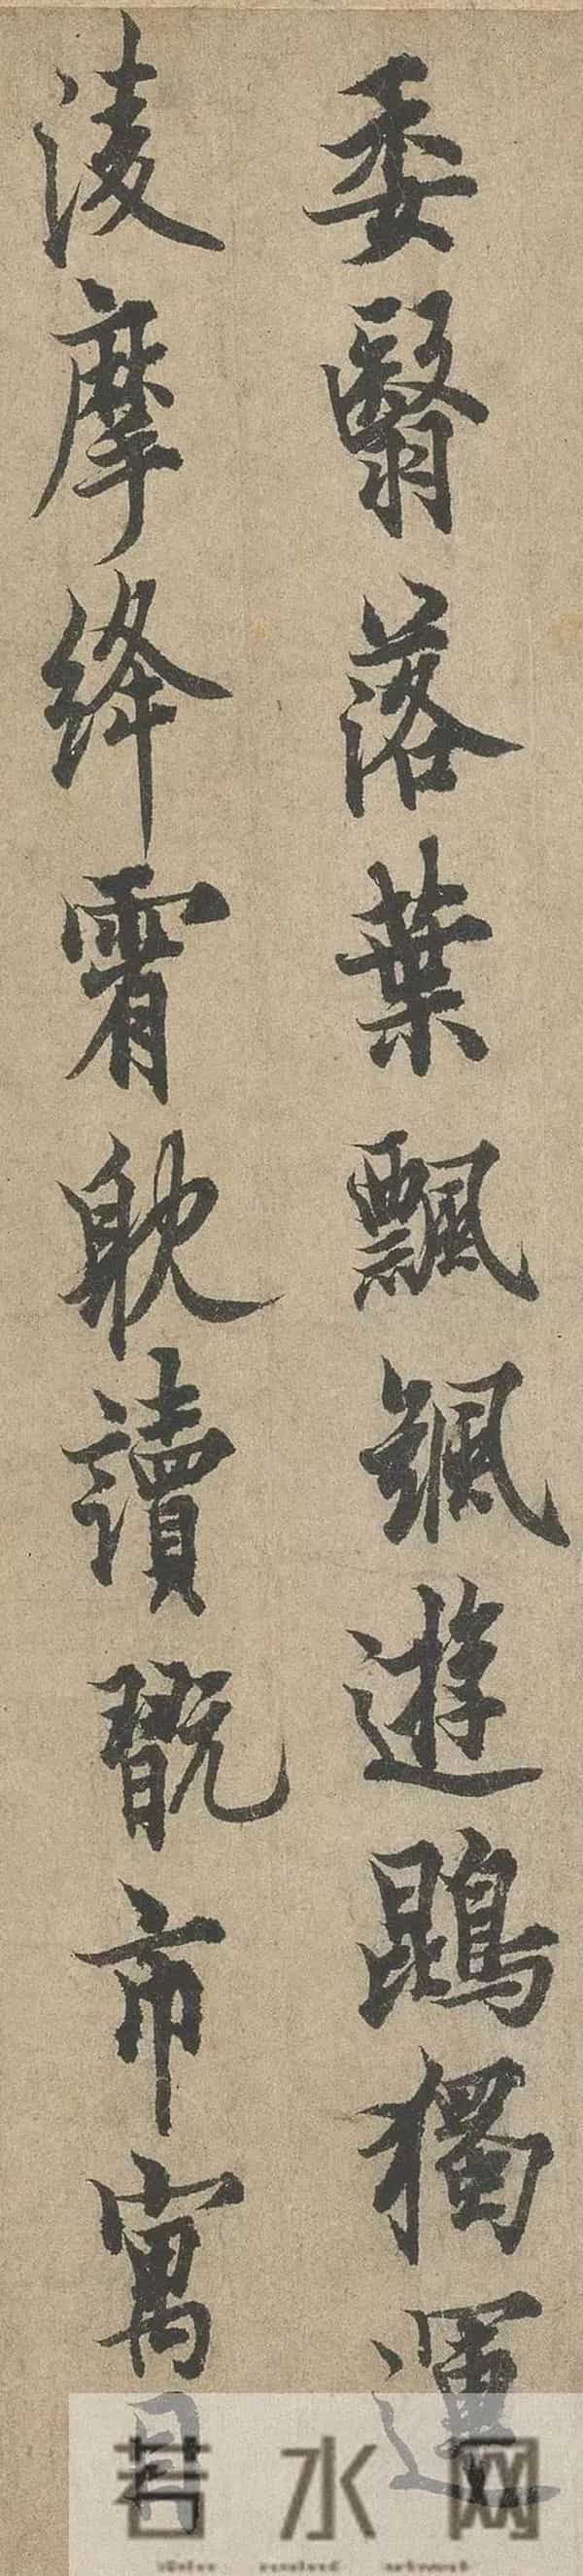 委翳落葉飄颻遊鵾獨運
淩摩絳霄耽讀翫市寓目
若水网